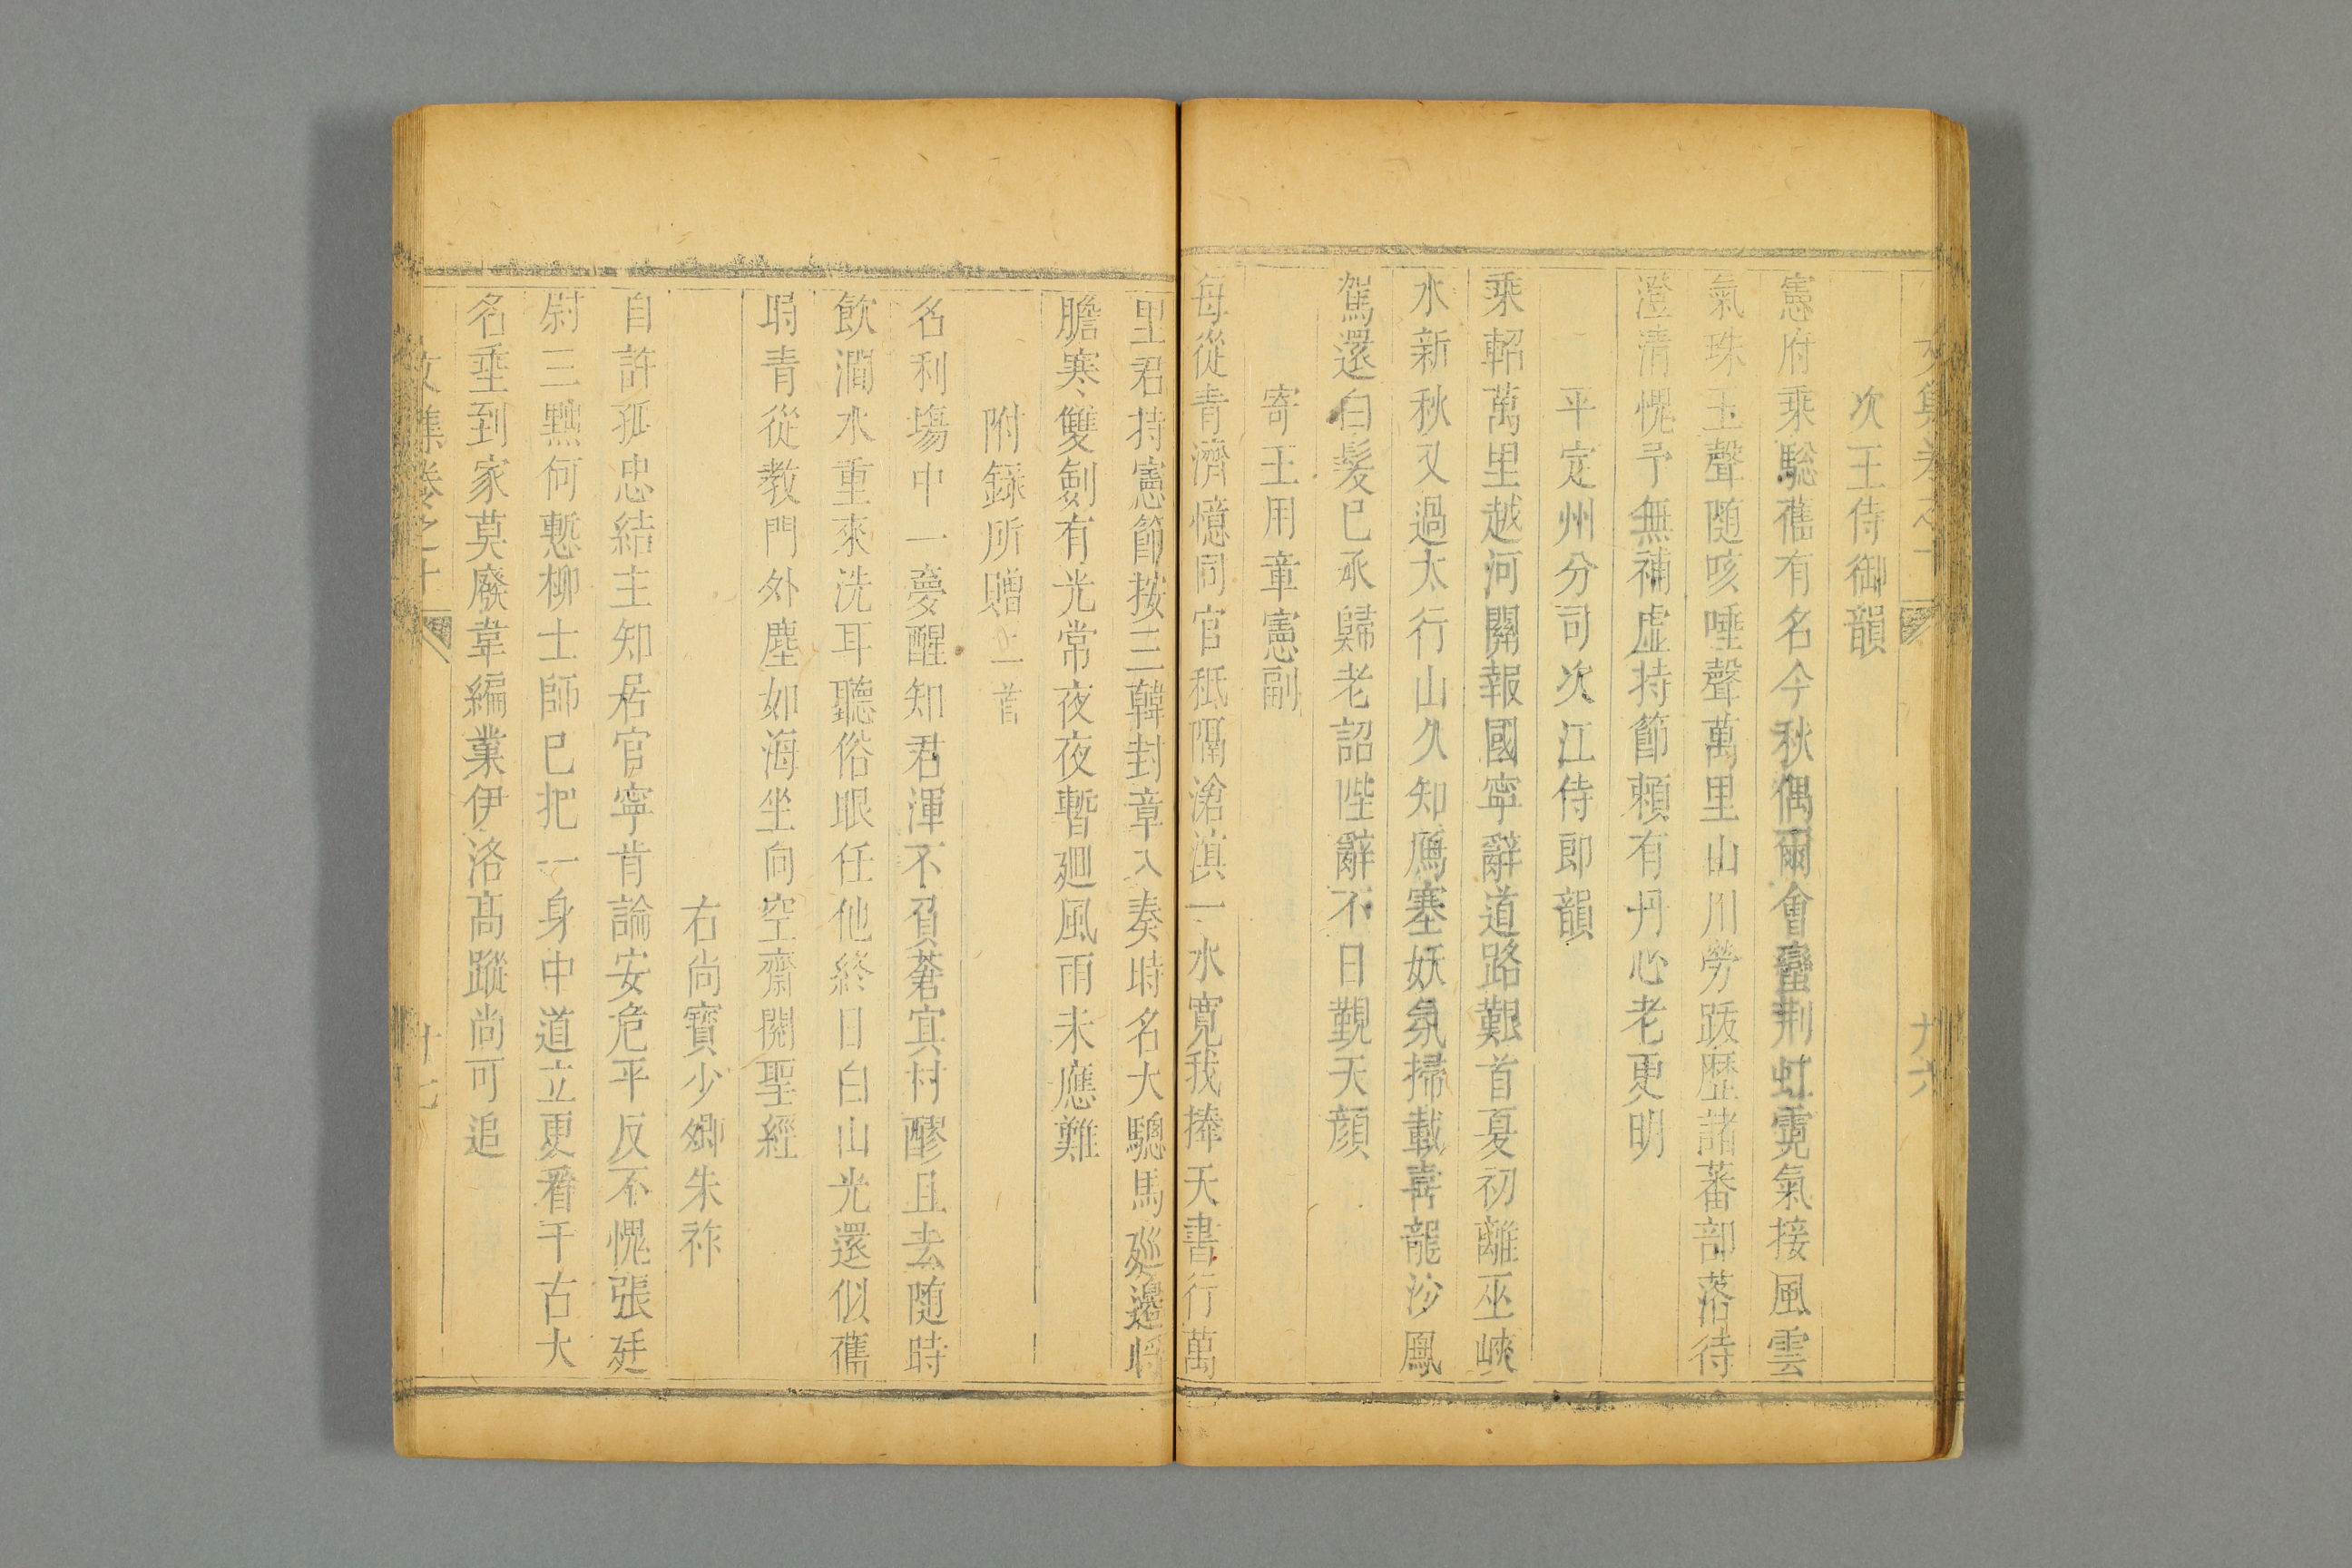 次王侍御韻
憲府乘驄舊有名今秋偶爾會蠻荆虹霓氣接風雲
氣珠玉聲随咳唾聲萬里山川勞跋歷諸蕃部落待
澄清愧予無補虛持節賴有丹心老更明
平定州分司次江侍郎韻
乘軺萬里越河關報國寧辭道路艱首夏初離巫峽
水新秋又過太行山久知鴈塞妖氛掃載喜龍沙鳳
駕還白髮已承歸老詔陛辭不日覲天顏
寄王用章憲副
每從青濟憶同官秪隔滄溟一水寬我捧天書行萬
里君持憲節按三韓封章入奏時名大驄馬廵邊將
膽寒雙劍有光常夜夜暫廻風雨未應難
附錄所贈二首
名利場中一夢醒知君渾不負蒼㝠村醪且去随時
飲澗水重來洗耳聽俗眼任他終日白山光還似舊
時青從教門外塵如海坐向空齋閱聖經
右尚寶少卿朱祚
自許孤忠結主知居官寧肯論安危平反不愧張廷
尉三黜何慙柳士師已把一身中道立更看千古大
名垂到家莫廢韋編業伊洛髙蹤尚可追
文集卷之十 十七